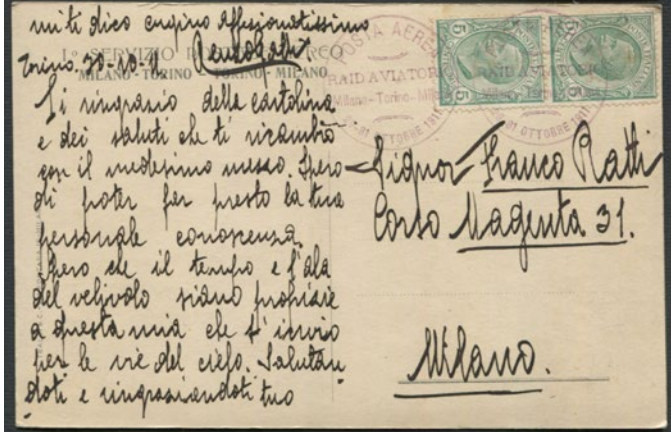 mi ti dico cugino affezionatissimo
1° SERVIZIO POSTALE AEREO
MILANO - TORINO - TORINO - MILANO
Torino. 30-10-11
Ti ringrazio della cartolina
e dei saluti che ti ricambio
con il medesimo mezzo. Spero
di poter far presto la tua
personale conoscenza.
Spero che il tempo e l'ala
del velivolo siano propizie
a questa mia che t'invio
per le vie del cielo. Salutan
doti e ringraziandoti tuo
POSTA AEREA
RAID AVIATORIO
Milano-Torino-Milano
OTTOBRE 1911
5
5
5
5
RAID AVIATORIO
OTTOBRE 1911
Signor Franco Ratti
Corso Magenta 31.
Milano.